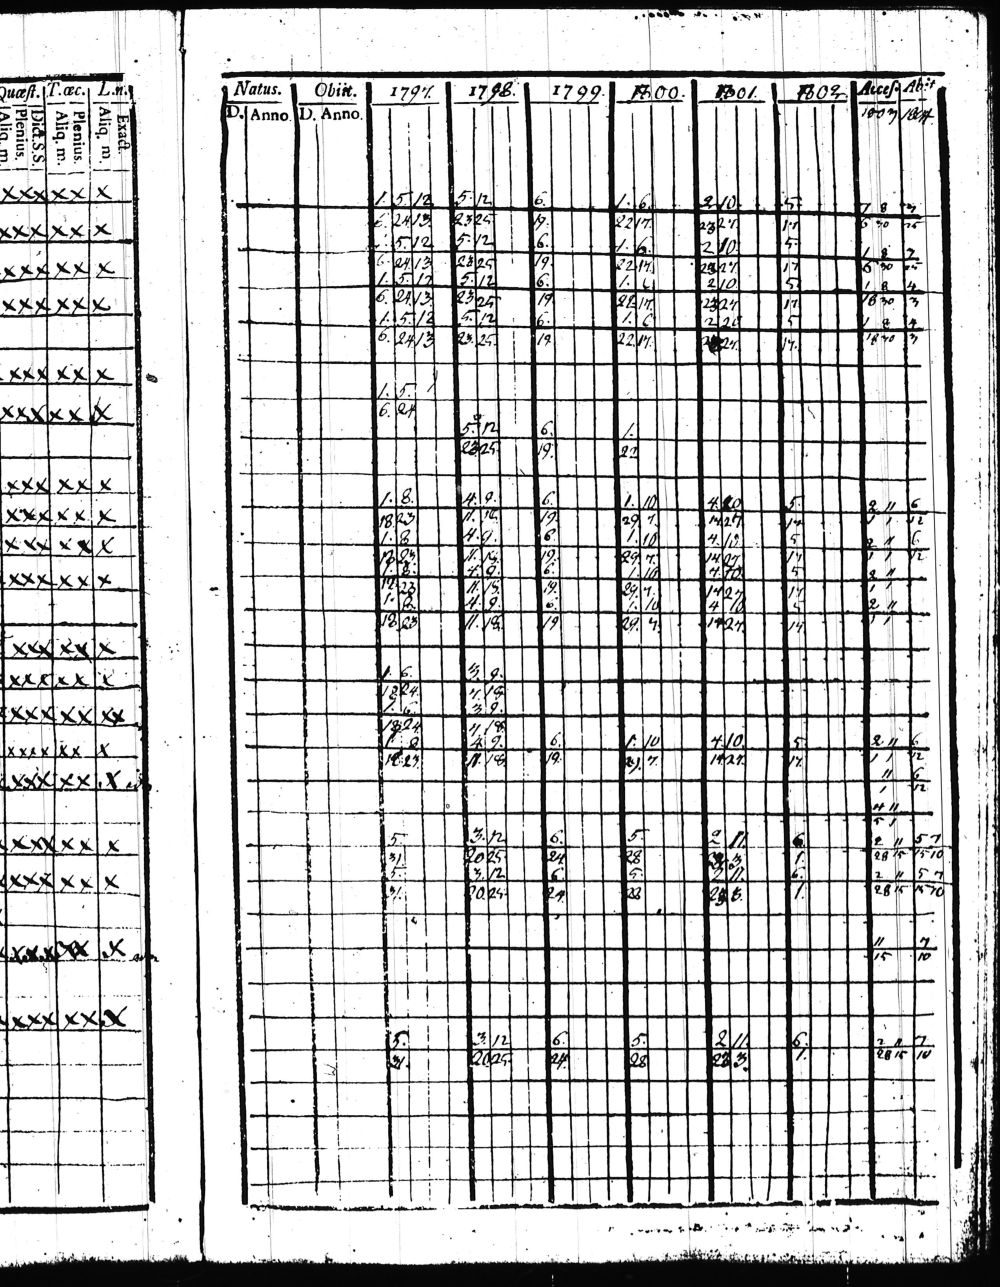 Quæst. T.æc. L.n.
Aliq. m. Plenius. Dict. S.S. Aliq. m. Plenius. Aliq. m. Exact.
Natus. Obiit. 1797. 1798. 1799. 1800. 1801. 1802. Access. Abiit
D. Anno. D. Anno. 1803 1804
xxx xx x 1. 5. 12 5. 12 6. 1. 6. 2 10 5 1 8
6. 24 13 23 25 19. 22 17. 23 27 17 6 30
xxx xx x 1. 5. 12 5. 12 6. 1. 6. 2 10 5 1 8
6. 24 13 23 25 19. 22 17. 23 27 17 6 30
xxxx xx x 1. 5. 12 5. 12 6. 1. 6 2 10 5 1 8 4
6. 24. 13 23 25 19 22 17 23 27 17. 18 30 3
xxxx xxx x 1. 5. 12 5. 12 6. 1. 6 5 1 8 4
6. 24 13 23. 25 19 22 17. 27. 17. 18 30 3
xxx xx x
1. 5.
xxxx xx x 6. 24
5. 12 6. 1.
23 25 19. 22
xxx xx x
1. 8. 4. 9. 6. 1. 10 4. 10 5. 2 11 6
xxx xx x 18 23 11. 18. 19. 29 7. 14 27 17 1 1 12
1. 8 4. 9. 6. 1. 10 4. 10 5 2 11 6
xxx xx x 18 23 11. 18. 19. 29. 7. 14 27 17 1 1 12
1. 8. 4. 9. 6. 1. 10 4. 10. 5 2 11
xxx xx x 18 23 11. 18. 19. 29. 7. 14 27 17 1 1
1. 8 4. 9. 6. 1. 10 4 10 5 2 11
18 23 11. 18. 19 29. 7. 14 27. 17. 1 1
xxx xx x
1. 6. 3. 9.
xxxx xx x 18 24 11. 18
1. 6. 3. 9.
xxxx xx xx 18 24 11. 18.
1. 8 4. 9. 6. 1. 10 4. 10. 5 2 11 6
xxxx xx x 18. 23 11. 18 19. 29. 7. 14 27 17 1 1 12
11 6
xxxx xx x 1 12
4 11
5 1
xxxx xx x 5. 3. 12 6. 5. 2 11. 6 2 11 5 7
31. 20 25 24 28 23 3 1. 28 15 15 10
xxxx xx x 5. 3. 12 6. 5. 2 11. 6. 2 11 5 7
31. 20 25 24. 28 23 3. 1. 28 15 15 10
xxxx xx x 11 7
15 10
xxxx xx x
5. 3. 12 6. 5. 2 11. 6. 2 11 7
31. 20 25. 24. 28 23 3. 1. 28 15 10